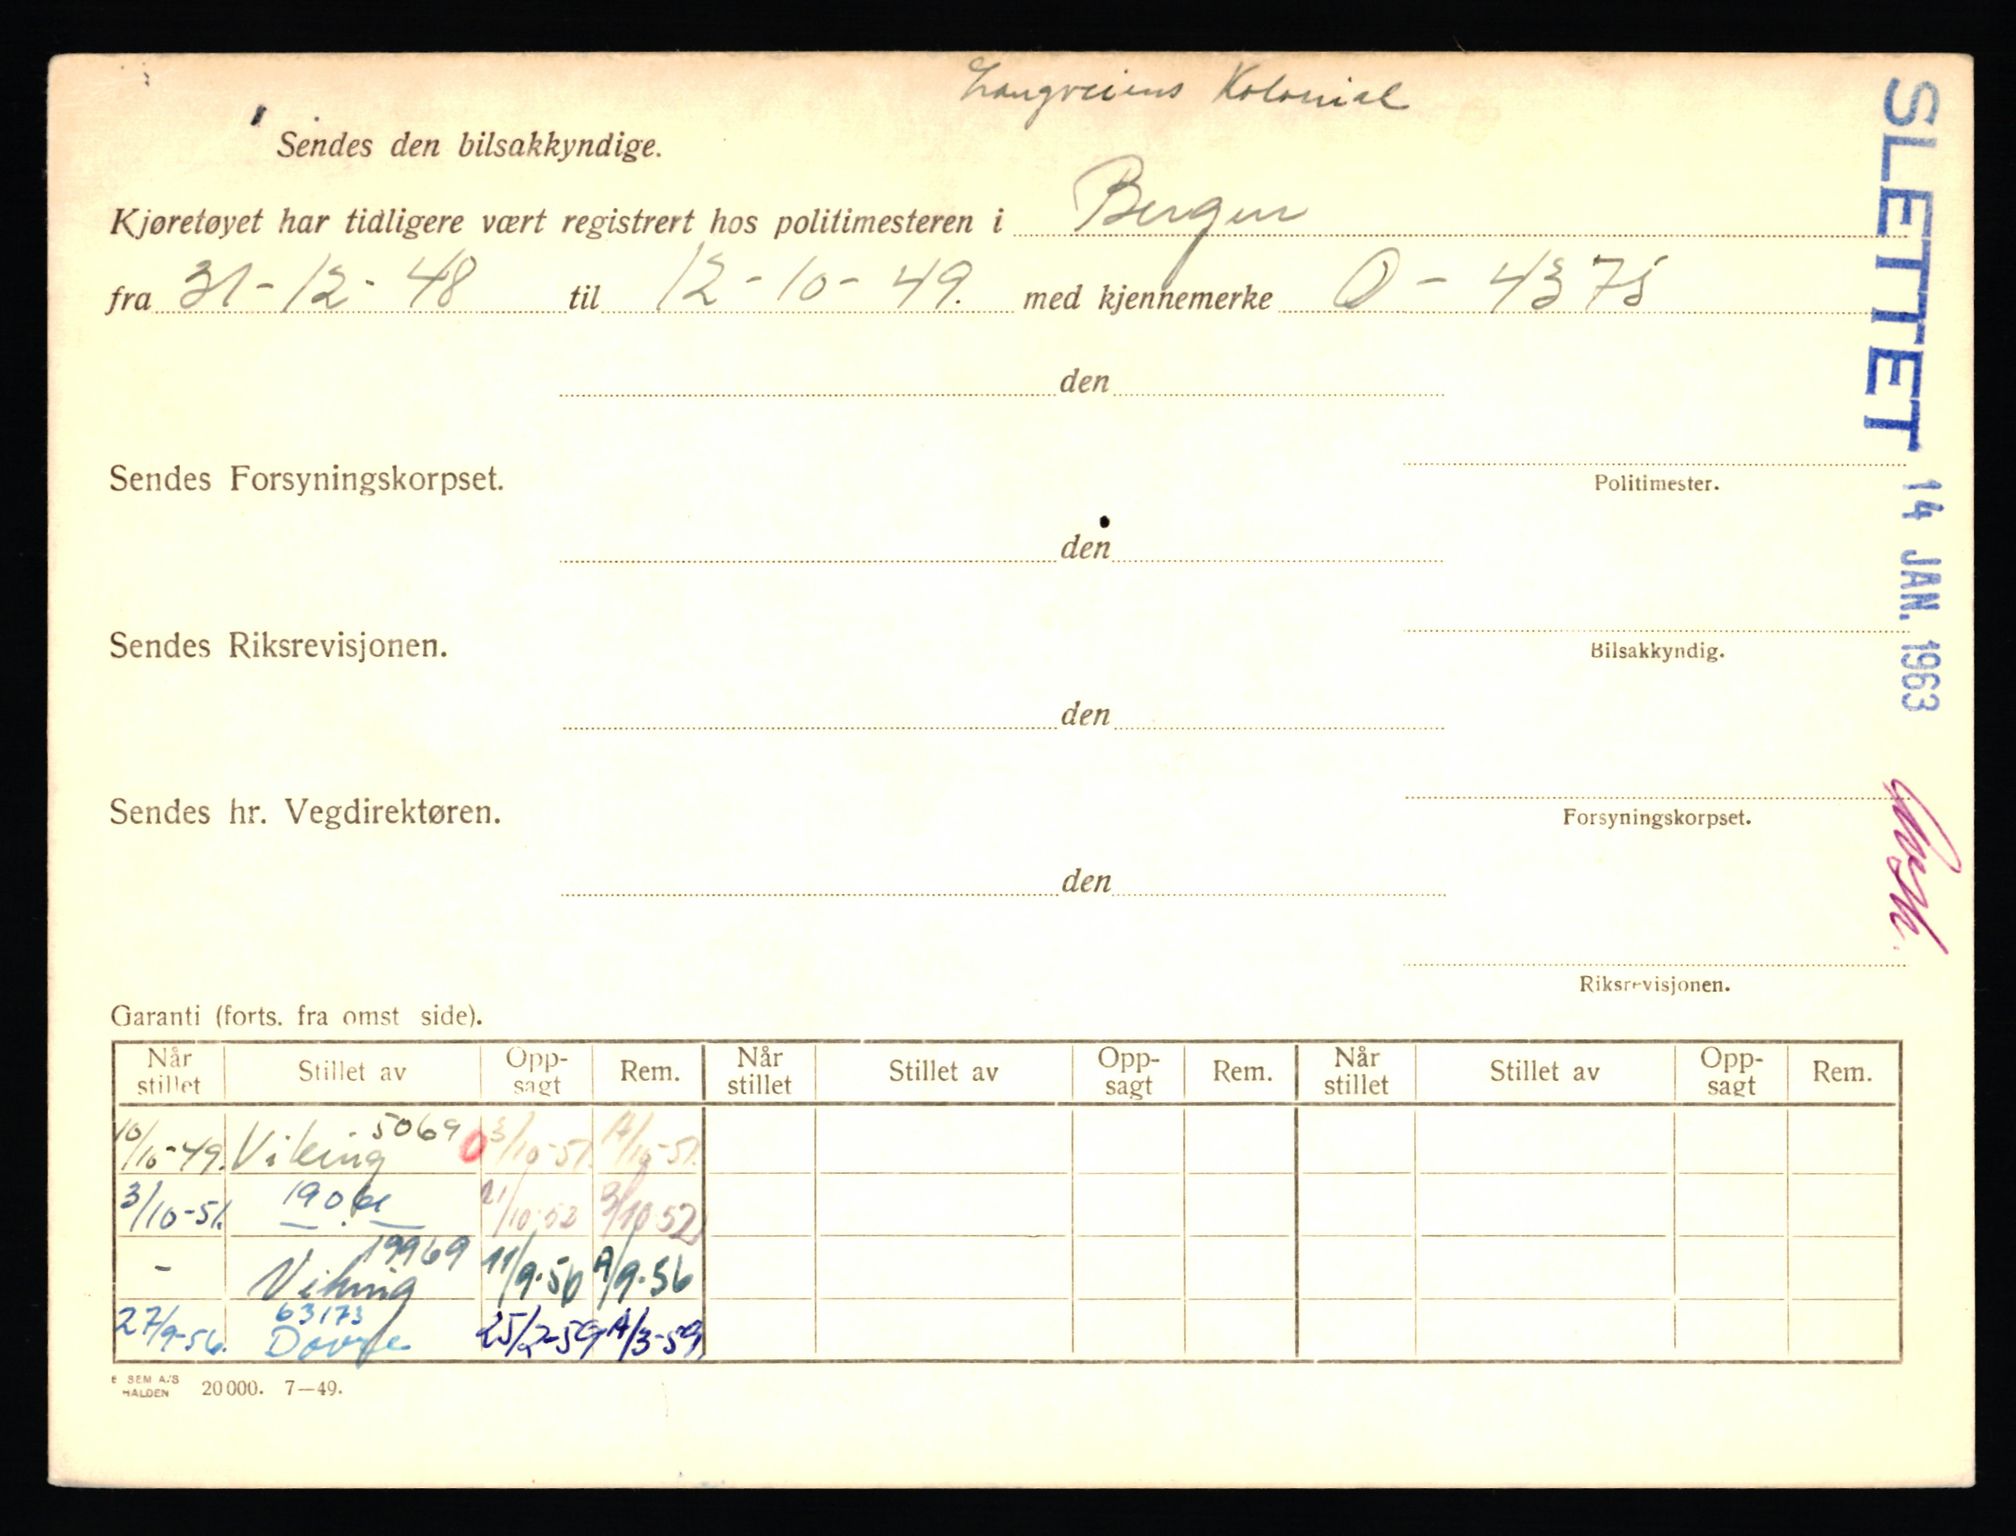 Langveiens Kolonial
Sendes den bilsakkyndige.
Kjøretøyet har tidligere vært registrert hos politimesteren i Bergen
fra 31-12-48 til 12-10-49. med kjennemerke O-4375
den
Sendes Forsyningskorpset.
Politimester.
den
Sendes Riksrevisjonen.
Bilsakkyndig.
den
Sendes hr. Vegdirektøren.
Forsyningskorpset.
den
Riksrevisjonen.
SLETTET 14 JAN. 1963
Garanti (forts. fra omst side).
Når stillet Stillet av Opp-sagt Rem. Når stillet Stillet av Opp-sagt Rem. Når stillet Stillet av Opp-sagt Rem.
10/10-49. Viking 5069 0 3/10-51. A/10-51.
3/10-51. 21/10-52 3/10 52
- Viking 19969 11/9-56 A/9-56
27/9-56. 63173 Dovre 25/2-59 A/3-59
E SEM A/S HALDEN 20000. 7—49.